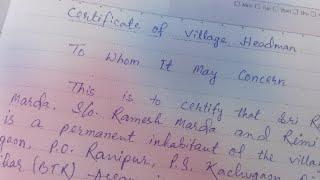 Certificate of Village Headman
To Whom It May Concern
This is to certify that Sri R
Marda. S/o. Ramesh Marda and Rimi
is a permanent inhabitant of the villa
gaon, P.O. Ranipur, P.S. Kachugaon
(BTR)